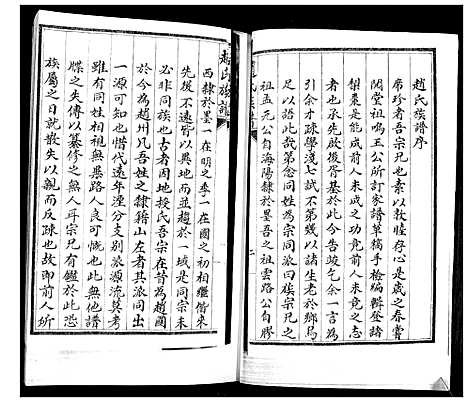 趙氏族譜序
席珍者吾宗兄也素以敦惺存心是春嘗
閱堂祖鳴玉公所訂家譜草稿手檢編輯登諸
梨棗是能成前人未成之功竟前人未竟之志
者也承先啟後胥基於此今告竣乞余一言為
引余才疎學淺七試不第幾以諸生老於鄉烏
足以叙此譜第念同姓為宗同宗為族宗兄之
祖孟元公自海陽隸於墨吾之祖雲路公自膠
西隸於墨一在明之季一在國之初相繼偕來
先後不遠皆以異地而並趨於一域是同宗未
必非同族也古者因地授氏吾宗在昔為趙國
於今為趙州凡吾姓之隸籍山左者其派同出
一源可知也惜代遠年湮分支別派源流莫考
雖有同姓相視無異路人良可慨也此無他譜
牒之失傳以纂修之無人耳宗兄有鑑於此恐
族屬之日就散失以親而反疎也故即前人所
趙氏族譜
二